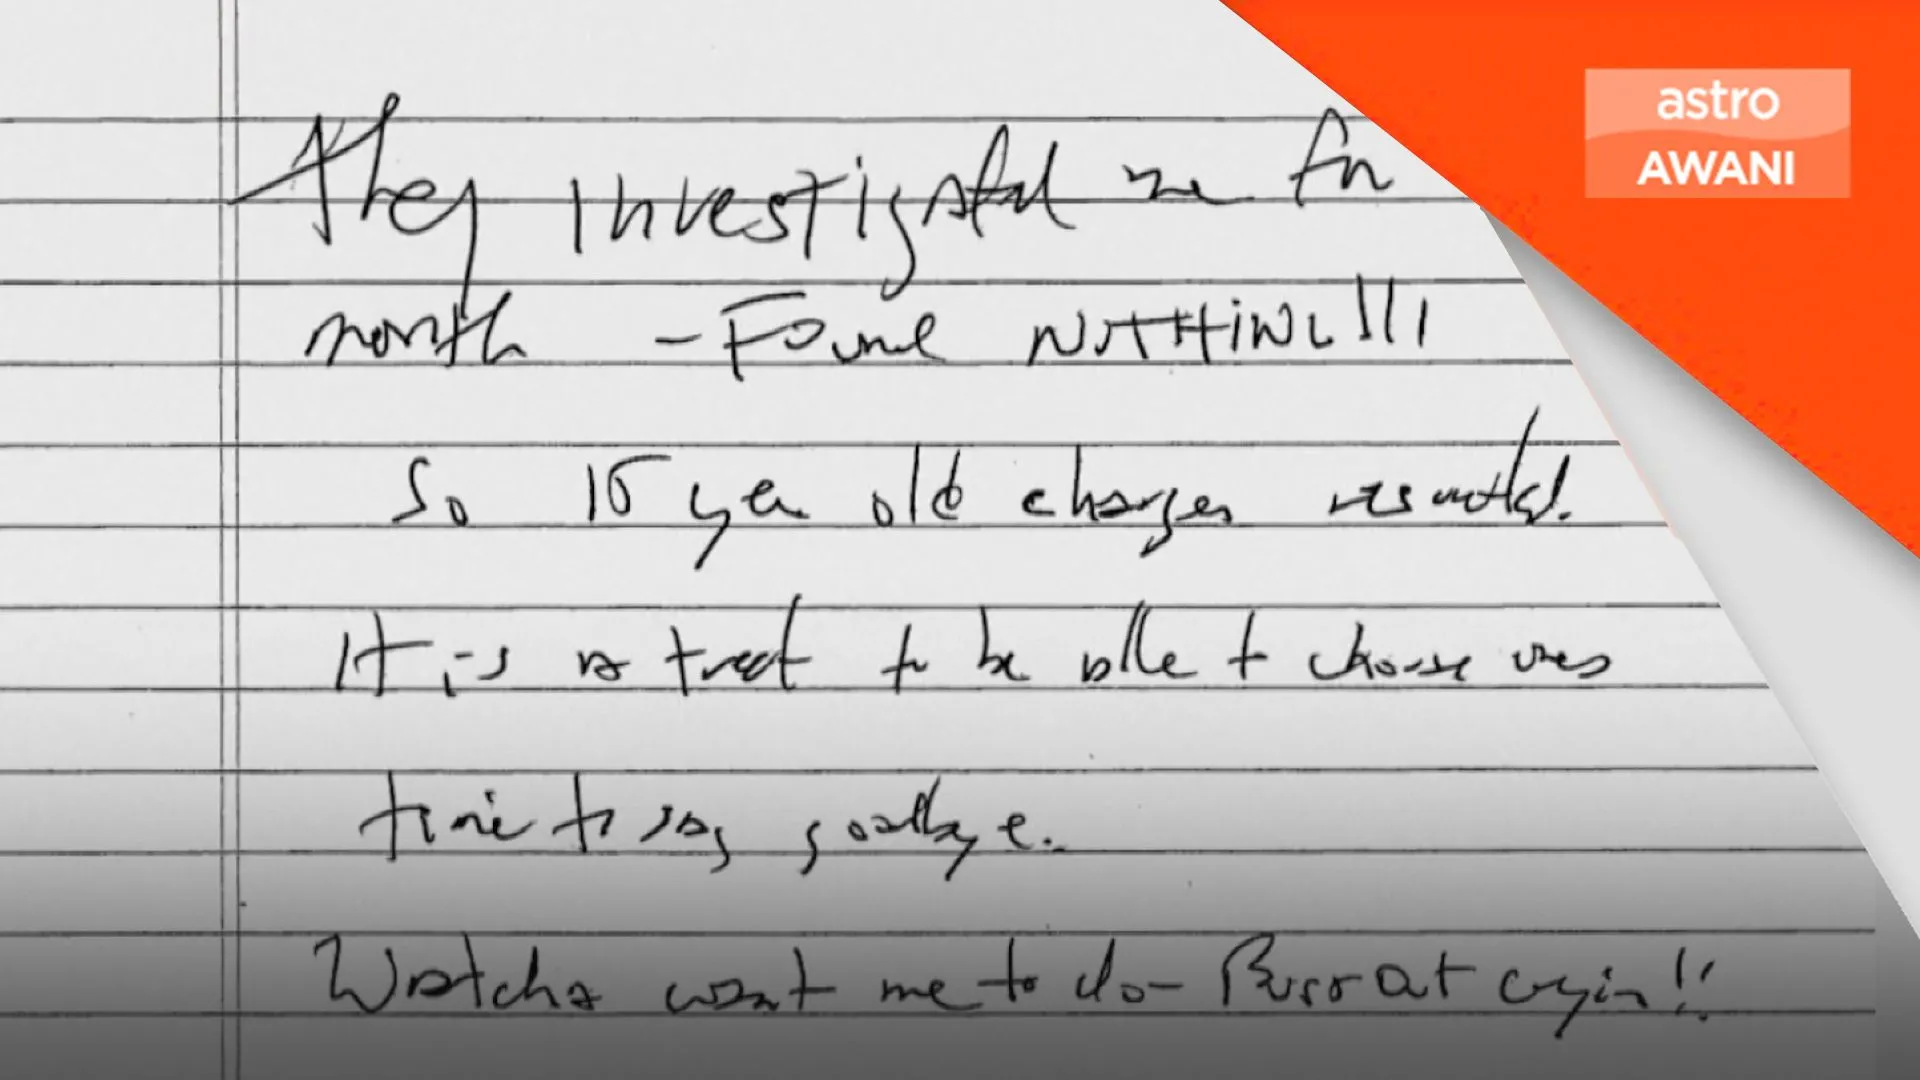 They investigated me for
month - Found NOTHING!!!
So 15 year old charges resulted.
It is a treat to be able to choose ones
time to say goodbye.
Watcha want me to do - Burst out cryin!!
astro
AWANI